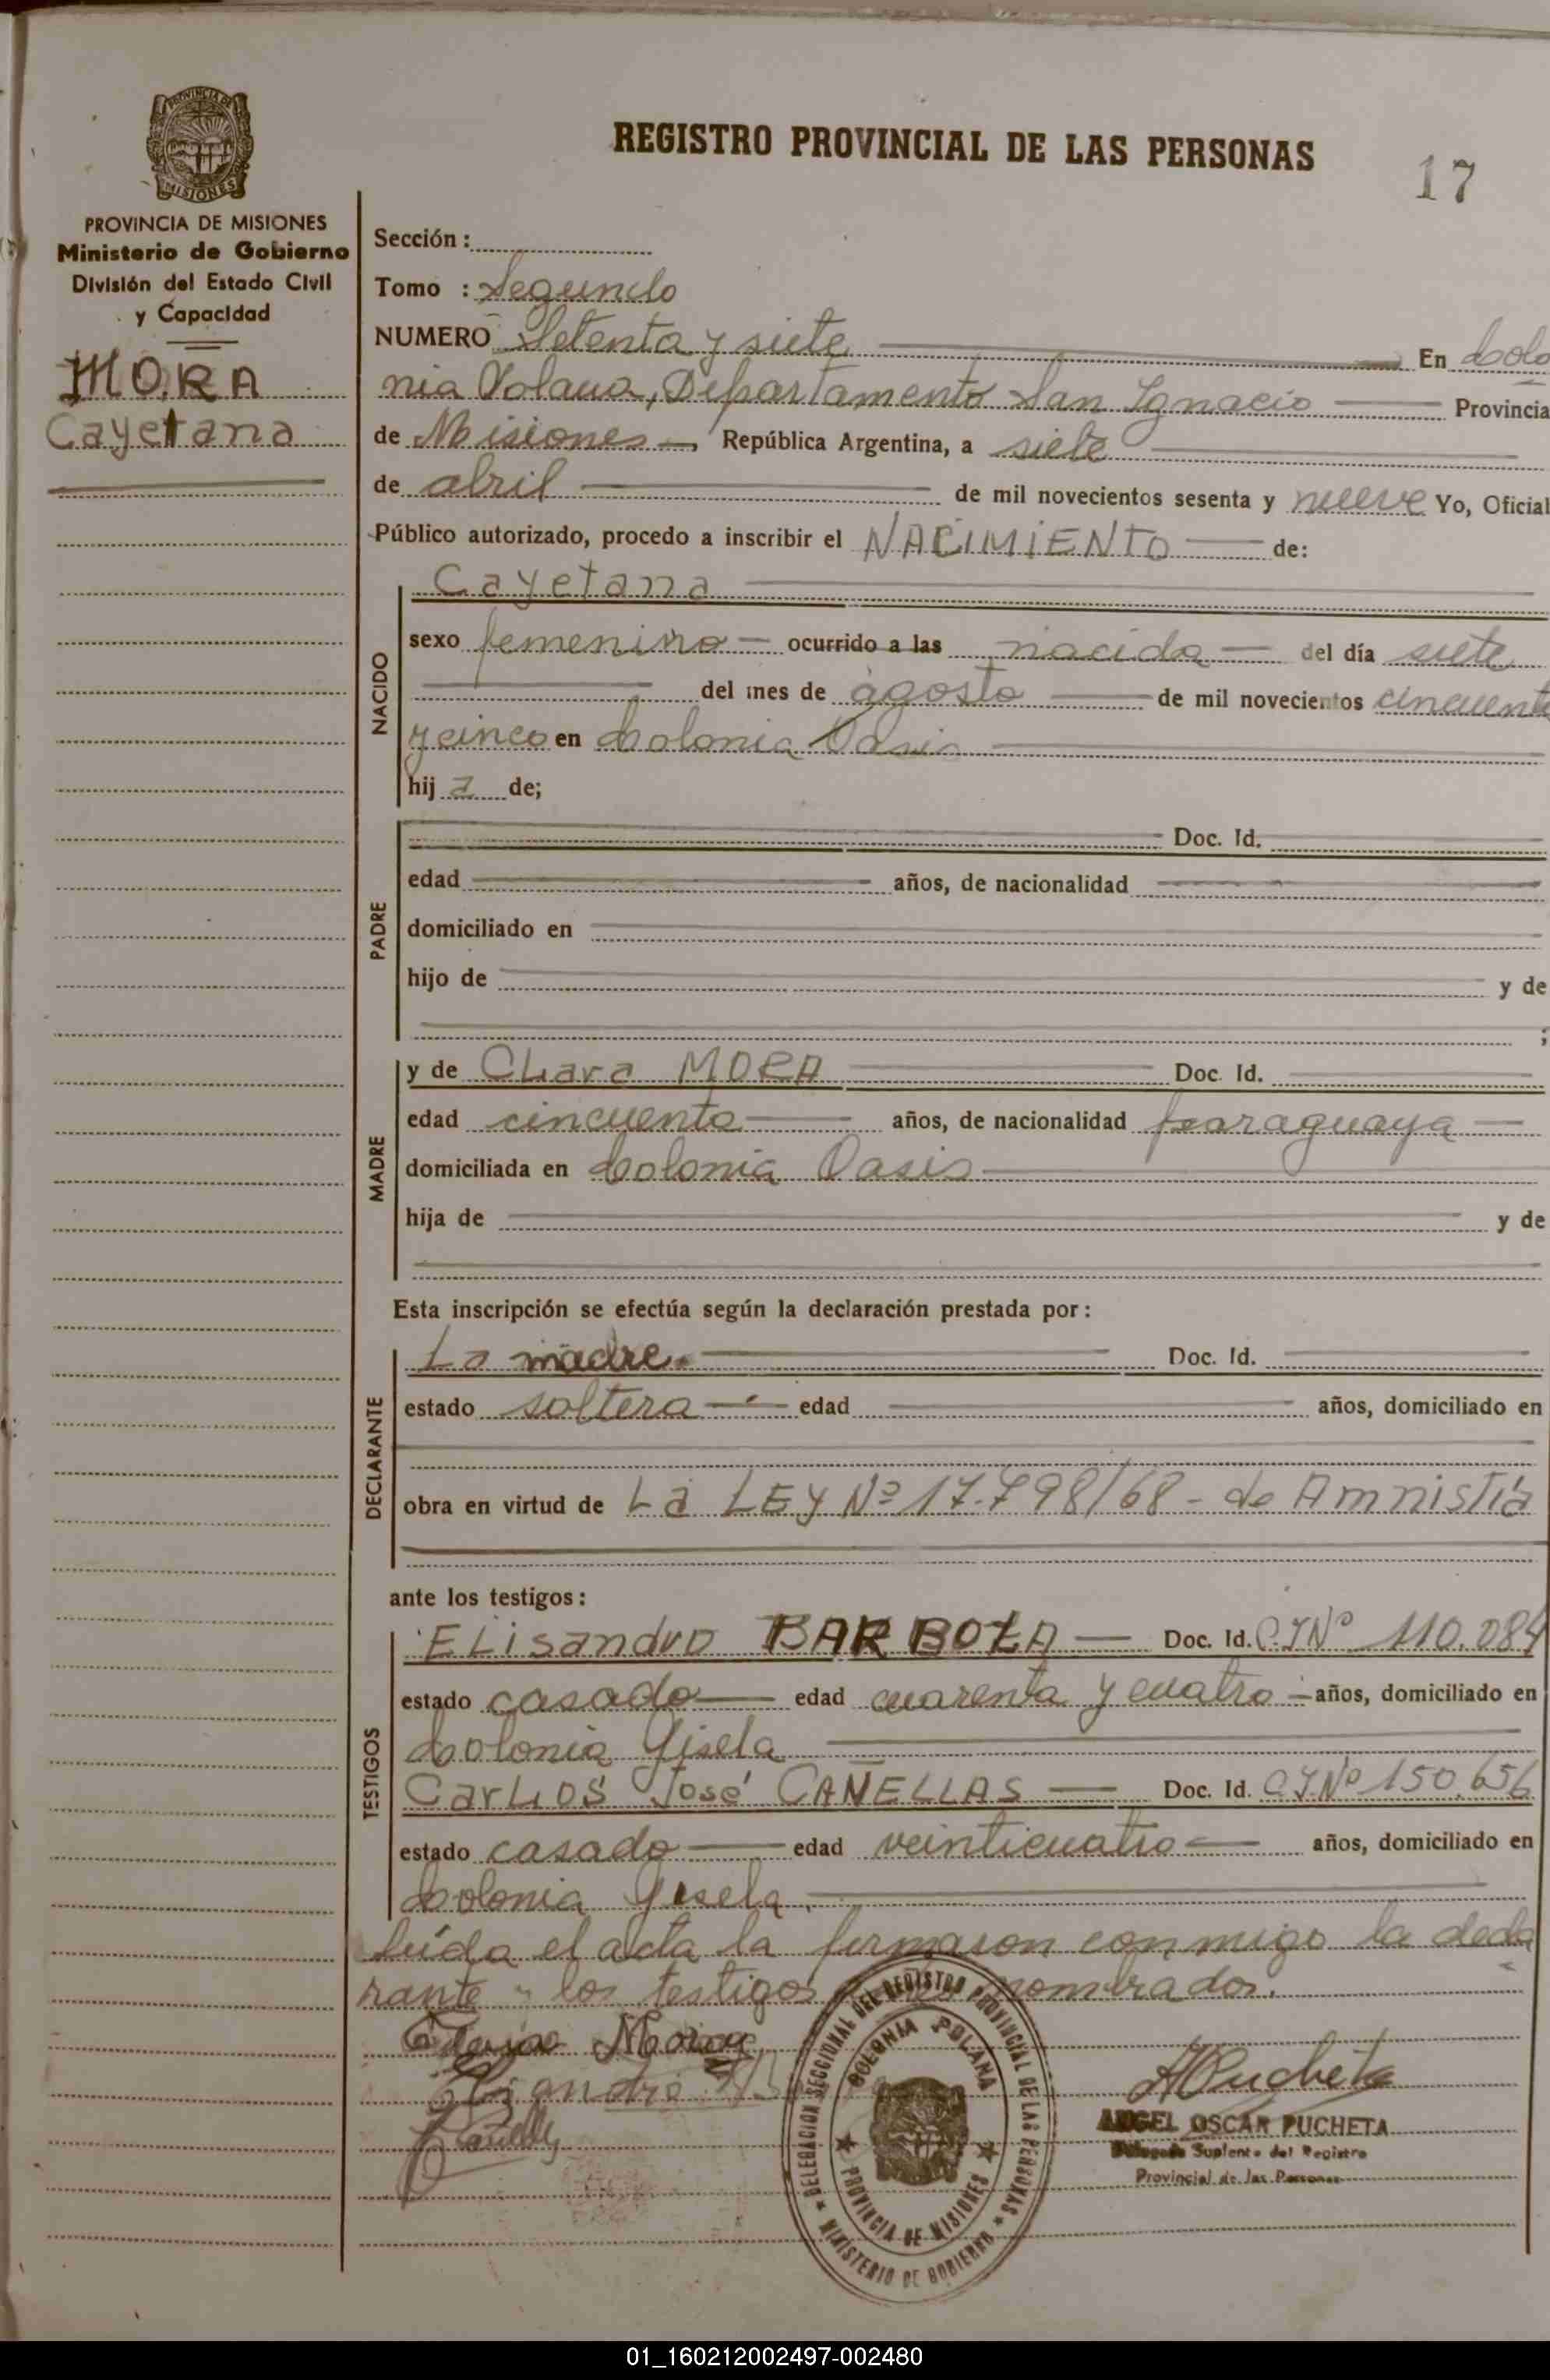 REGISTRO PROVINCIAL DE LAS PERSONAS
17
PROVINCIA DE MISIONES
MISIONES
PROVINCIA DE MISIONES
Ministerio de Gobierno
División del Estado Civil
y Capacidad
MORA
Cayetana
Sección :
Tomo : Segundo
NUMERO Setenta y siete En Colo
nia Polana, Departamento San Ignacio Provincia
de Misiones, República Argentina, a siete
de abril de mil novecientos sesenta y nueve Yo, Oficial
Público autorizado, procedo a inscribir el NACIMIENTO de:
NACIDO
Cayetana
sexo femenino ocurrido a las nacida del día siete
del mes de agosto de mil novecientos cincuenta
y cinco en Colonia Oasis
hij a de;
PADRE
Doc. Id.
edad años, de nacionalidad
domiciliado en
hijo de y de
;
MADRE
y de CLara MORA Doc. Id.
edad cincuenta años, de nacionalidad paraguaya
domiciliada en Colonia Oasis
hija de y de
Esta inscripción se efectúa según la declaración prestada por :
DECLARANTE
La madre. Doc. Id.
estado soltera edad años, domiciliado en
obra en virtud de La LEY Nº 17.798/68 - de Amnistía
ante los testigos :
TESTIGOS
ELisandro BARBOZA Doc. Id. C.I Nº 110.084
estado casado edad cuarenta y cuatro años, domiciliado en
Colonia Gisela
CarLos José CAÑELLAS Doc. Id. C.I.Nº 150.656
estado casado edad veinticuatro años, domiciliado en
Colonia Gisela
Leída el acta la firmaron conmigo la decla
rante y los testigos nombrados.
DELEGACION SECCIONAL DEL REGISTRO PROVINCIAL DE LAS PERSONAS
MINISTERIO DE GOBIERNO
COLONIA POLANA
PROVINCIA DE MISIONES
APucheta
ANGEL OSCAR PUCHETA
Delegado Suplente del Registro
Provincial de las Personas
01_160212002497-002480